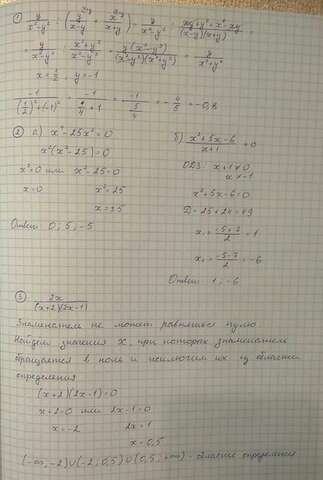 ① y/(x²-y²) : (y/(x-y) + x/(x+y)) = y/(x²-y²) : (xy+y²+x²-xy)/((x-y)(x+y)) =
= y/(x²-y²) : (x²+y²)/(x²-y²) = y(x²-y²)/((x²-y²)(x²+y²)) = y/(x²+y²)
x = 1/2 y = -1
-1/((1/2)²+(-1)²) = -1/(1/4+1) = -1/(5/4) = -4/5 = -0,8
② а) x⁴-25x²=0
x²(x²-25)=0
x²=0 или x²-25=0
x=0 x²=25
x=±5
Ответ: 0; 5; -5
б) (x²+5x-6)/(x+1) = 0
ОДЗ: x+1≠0
x≠-1
x²+5x-6=0
D=25+24=49
x₁=(-5+7)/2=1
x₂=(-5-7)/2=-6
Ответ: 1; -6
③ 2x/((x+2)(2x-1))
Знаменатель не может равняться нулю
Найдём значения x, при которых знаменатель
обращается в ноль и исключим их из области
определения
(x+2)(2x-1)=0
x+2=0 или 2x-1=0
x=-2 2x=1
x=0,5
(-∞; -2)∪(-2; 0,5)∪(0,5; +∞) - область определения